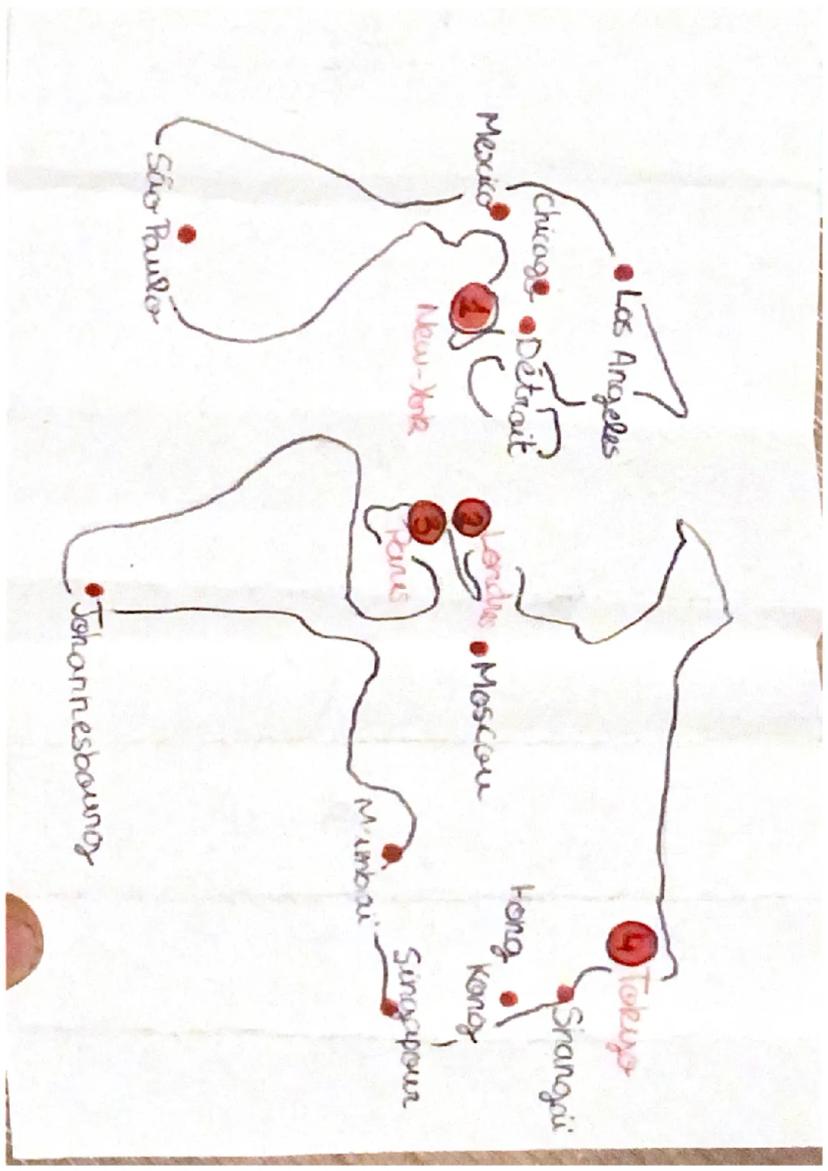 Los Angeles
Chicago
Détroit
Mexico
1
New-York
São Paulo
2
Londres
3
Paris
Moscou
Johannesbourg
Mumbaï
4
Tokyo
Shangaï
Hong
Kong
Singapour